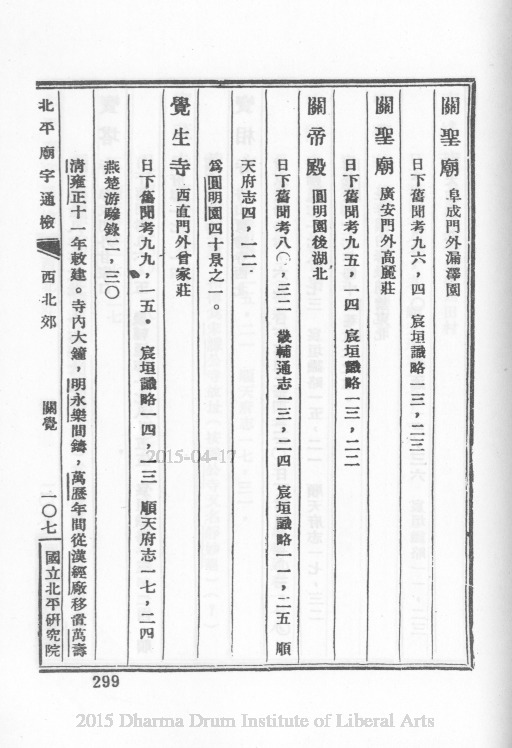 關聖廟　阜成門外漏澤園
日下舊聞考九六，四〇　宸垣識略一三，二三
關聖廟　廣安門外高麗莊
日下舊聞考九五，一四　宸垣識略一三，二二
關帝殿　圓明園後湖北
日下舊聞考八〇，三二　畿輔通志一三，二四　宸垣識略一一，二五　順
天府志四，一二
爲圓明園四十景之一。
覺生寺　西直門外曾家莊
日下舊聞考九九，一五。　宸垣識略一四，一三　順天府志一七，二四
燕楚游驂錄二，三〇
清雍正十一年敕建。寺內大鐘，明永樂間鑄，萬歷年間從漢經廠移置萬壽
北平廟宇通檢　西北郊　關覺　一〇七　國立北平研究院
299
2015-04-17
2015 Dharma Drum Institute of Liberal Arts